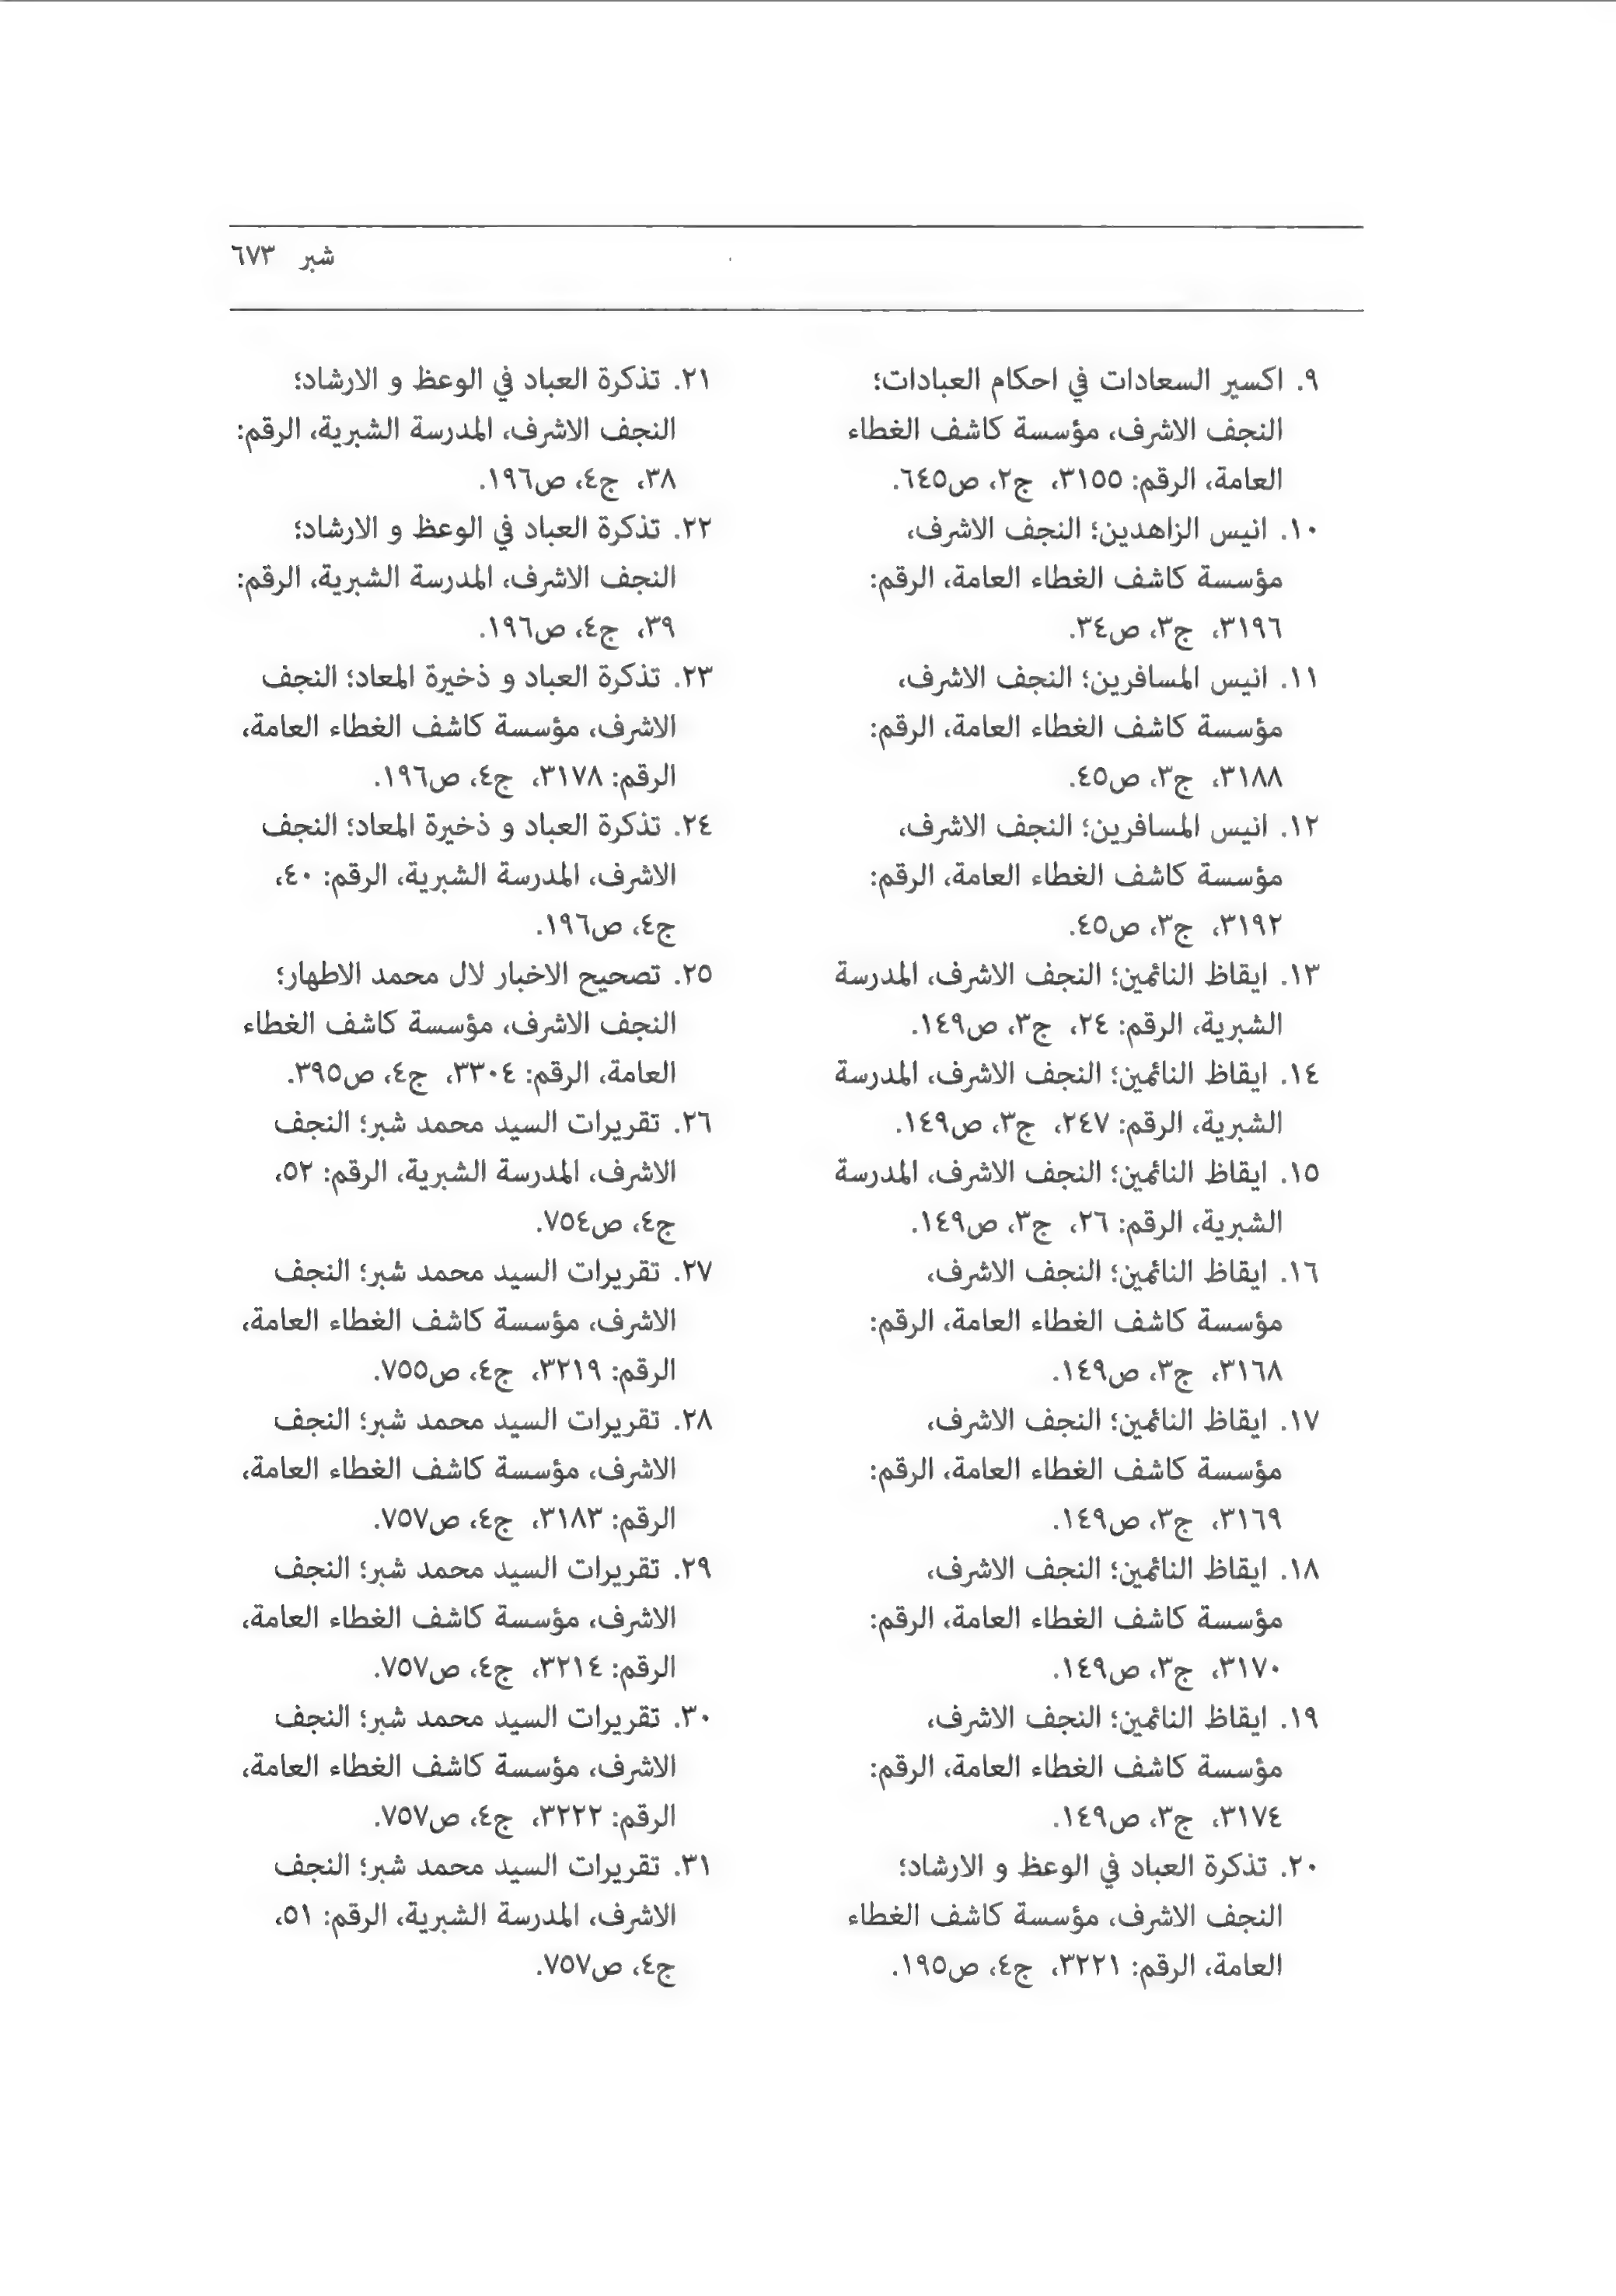 شبر ٦٧٣
٩. اكسير السعادات في احكام العبادات؛
النجف الاشرف، مؤسسة كاشف الغطاء
العامة، الرقم: ٣١٥٥، ج٢، ص٦٤٥.
١٠. انيس الزاهدين؛ النجف الاشرف،
مؤسسة كاشف الغطاء العامة، الرقم:
٣١٩٦، ج٣، ص٣٤.
١١. انيس المسافرين؛ النجف الاشرف،
مؤسسة كاشف الغطاء العامة، الرقم:
٣١٨٨، ج٣، ص٤٥.
١٢. انيس المسافرين؛ النجف الاشرف،
مؤسسة كاشف الغطاء العامة، الرقم:
٣١٩٢، ج٣، ص٤٥.
١٣. ايقاظ النائمين؛ النجف الاشرف، المدرسة
الشبرية، الرقم: ٢٤، ج٣، ص١٤٩.
١٤. ايقاظ النائمين؛ النجف الاشرف، المدرسة
الشبرية، الرقم: ٢٤٧، ج٣، ص١٤٩.
١٥. ايقاظ النائمين؛ النجف الاشرف، المدرسة
الشبرية، الرقم: ٢٦، ج٣، ص١٤٩.
١٦. ايقاظ النائمين؛ النجف الاشرف،
مؤسسة كاشف الغطاء العامة، الرقم:
٣١٦٨، ج٣، ص١٤٩.
١٧. ايقاظ النائمين؛ النجف الاشرف،
مؤسسة كاشف الغطاء العامة، الرقم:
٣١٦٩، ج٣، ص١٤٩.
١٨. ايقاظ النائمين؛ النجف الاشرف،
مؤسسة كاشف الغطاء العامة، الرقم:
٣١٧٠، ج٣، ص١٤٩.
١٩. ايقاظ النائمين؛ النجف الاشرف،
مؤسسة كاشف الغطاء العامة، الرقم:
٣١٧٤، ج٣، ص١٤٩.
٢٠. تذكرة العباد في الوعظ و الارشاد؛
النجف الاشرف، مؤسسة كاشف الغطاء
العامة، الرقم: ٣٢٢١، ج٤، ص١٩٥.
٢١. تذكرة العباد في الوعظ و الارشاد؛
النجف الاشرف، المدرسة الشبرية، الرقم:
٣٨، ج٤، ص١٩٦.
٢٢. تذكرة العباد في الوعظ و الارشاد؛
النجف الاشرف، المدرسة الشبرية، الرقم:
٣٩، ج٤، ص١٩٦.
٢٣. تذكرة العباد و ذخيرة المعاد؛ النجف
الاشرف، مؤسسة كاشف الغطاء العامة،
الرقم: ٣١٧٨، ج٤، ص١٩٦.
٢٤. تذكرة العباد و ذخيرة المعاد؛ النجف
الاشرف، المدرسة الشبرية، الرقم: ٤٠،
ج٤، ص١٩٦.
٢٥. تصحيح الاخبار لال محمد الاطهار؛
النجف الاشرف، مؤسسة كاشف الغطاء
العامة، الرقم: ٣٣٠٤، ج٤، ص٣٩٥.
٢٦. تقريرات السيد محمد شبر؛ النجف
الاشرف، المدرسة الشبرية، الرقم: ٥٢،
ج٤، ص٧٥٤.
٢٧. تقريرات السيد محمد شبر؛ النجف
الاشرف، مؤسسة كاشف الغطاء العامة،
الرقم: ٣٢١٩، ج٤، ص٧٥٥.
٢٨. تقريرات السيد محمد شبر؛ النجف
الاشرف، مؤسسة كاشف الغطاء العامة،
الرقم: ٣١٨٣، ج٤، ص٧٥٧.
٢٩. تقريرات السيد محمد شبر؛ النجف
الاشرف، مؤسسة كاشف الغطاء العامة،
الرقم: ٣٢١٤، ج٤، ص٧٥٧.
٣٠. تقريرات السيد محمد شبر؛ النجف
الاشرف، مؤسسة كاشف الغطاء العامة،
الرقم: ٣٢٢٢، ج٤، ص٧٥٧.
٣١. تقريرات السيد محمد شبر؛ النجف
الاشرف، المدرسة الشبرية، الرقم: ٥١،
ج٤، ص٧٥٧.